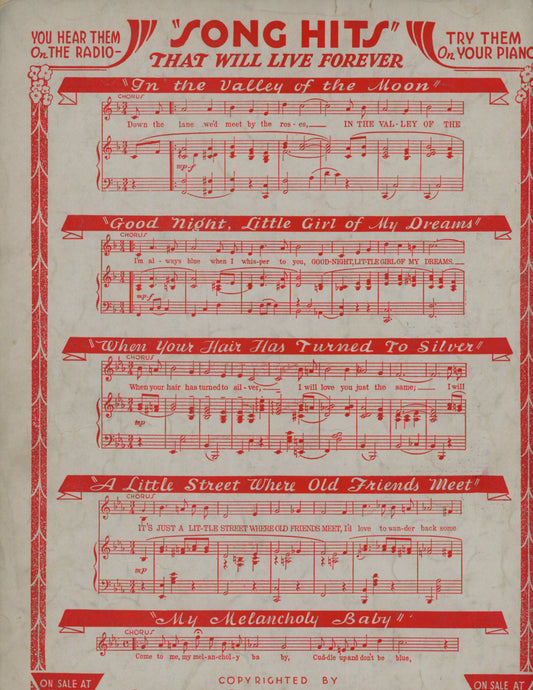 YOU HEAR THEM
On THE RADIO-
"SONG HITS"
THAT WILL LIVE FOREVER
TRY THEM
On YOUR PIANO
"In the Valley of the Moon"
CHORUS
Down the lane we'd meet by the ros-es, IN THE VAL-LEY OF THE
mp-f
"Good Night, Little Girl of My Dreams"
CHORUS
I'm al-ways blue when I whis-per to you, GOOD-NIGHT, LIT-TLE GIRL OF MY DREAMS.
mp-f
"When Your Hair Has Turned To Silver"
CHORUS
When your hair has turned to sil-ver, I will love you just the same; I will
mp
"A Little Street Where Old Friends Meet"
CHORUS
IT'S JUST A LIT-TLE STREET WHERE OLD FRIENDS MEET, I'd love to wan-der back some
mp
"My Melancholy Baby"
CHORUS
Come to me, my mel-an-chol-y ba by, Cud-dle up and don't be blue,
ON SALE AT
COPYRIGHTED BY
ON SALE AT